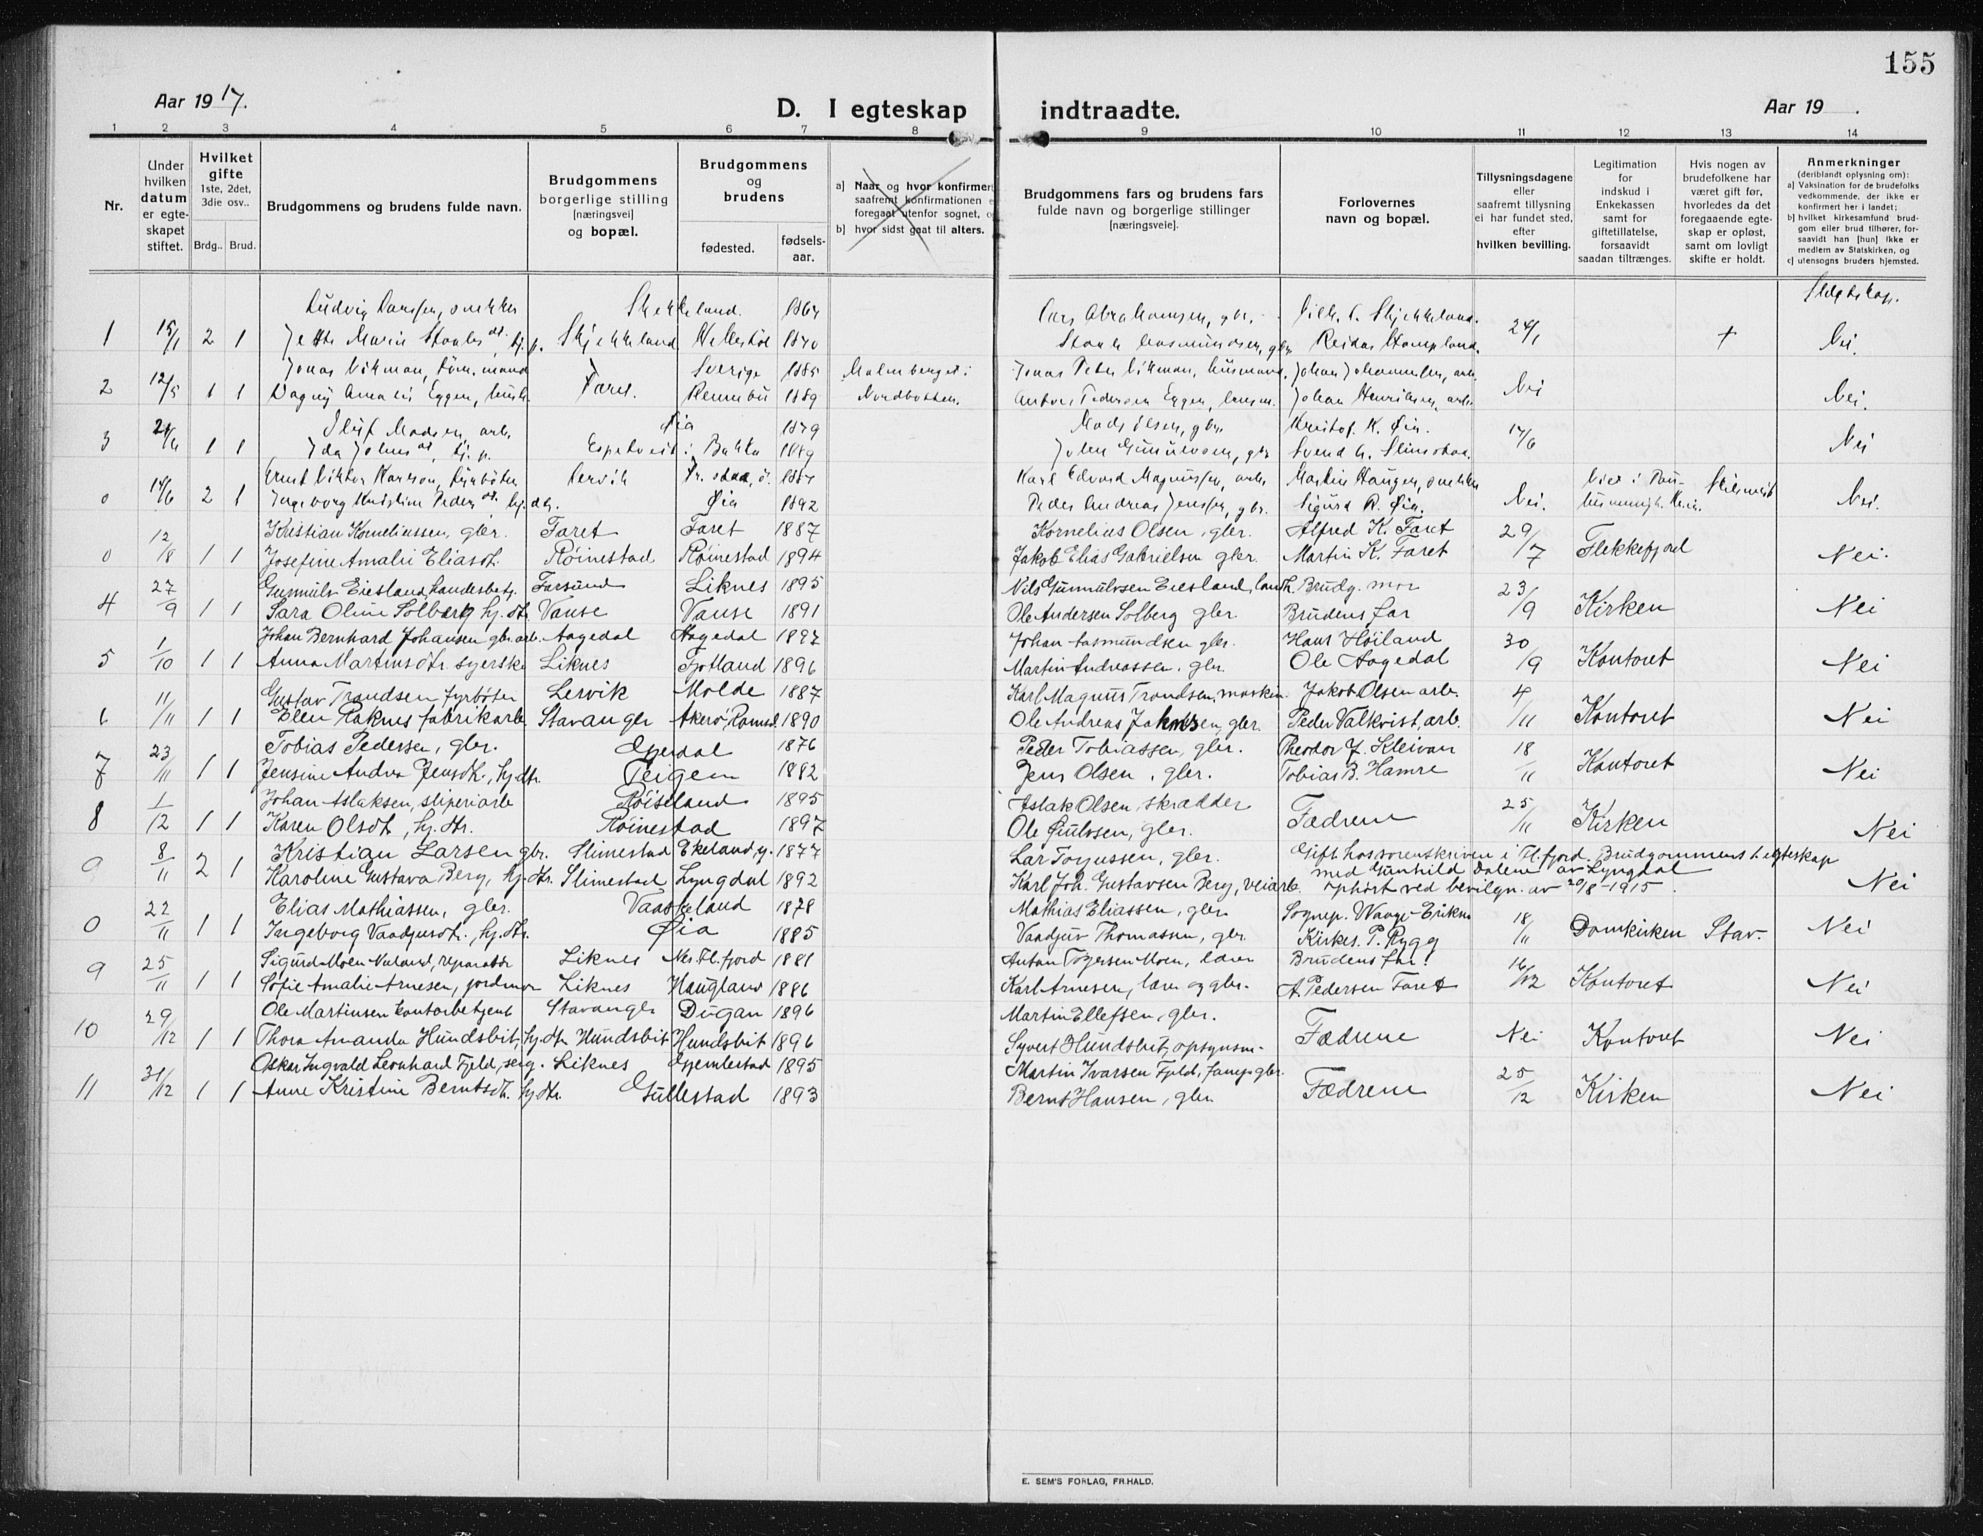 155
Aar 19 17.
D. I egteskap indtraadte.
Aar 19
1 2 3 4 5 6 7 8 9 10 11 12 13 14
Nr.
Under hvilken datum er egte- skapet stiftet.
Hvilket gifte 1ste, 2det, 3die osv.. Brdg.. Brud.
Brudgommens og brudens fulde navn.
Brudgommens borgerlige stilling [næringsvei] og bopæl.
Brudgommens og brudens
fødested.
fødsels- aar.
a] Naar og hvor konfirmer
saafremt konfirmationen e
foregaat utenfor sognet, o
b] hvor sidst gaat til alters.
Brudgommens fars og brudens fars fulde navn og borgerlige stillinger [næringsveie].
Forlovernes navn og bopæl.
Tillysningsdagene eller saafremt tillysning ei har fundet sted, efter hvilken bevilling.
Legitimation for indskud i Enkekassen samt for giftetillatelse, forsaavidt saadan tiltrænges.
Hvis nogen av brudefolkene har været gift før, hvorledes da det foregaaende egte- skap er opløst, samt om lovligt skifte er holdt.
Anmerkninger (deriblandt oplysning om): a] Vaksination for de brudefolks vedkommende, der ikke er konfirmert her i landet; b] hvilket kirkesamfund brud- gom eller brud tilhører, for- saavidt han [hun] ikke er medlem av Statskirken, og c] utensogns bruders hjemsted.
Ludvig Larssen, snekker
1 15/1 2 1 Jette Marie Hellestøl 24/1 + Nei.
Jonas Vikman, Sverige 1885 Malmberget i Jonas Peter Vikman, husmand, Johan Johannesen, arb.
2 12/5 1 1 Dagny Amalie Eggen, Faret. 1889 Nordbotten. Pedersen Eggen, Johan Henriksen, arb. Nei Nei.
Madsen, arb. Øia 1879 Mads Olsen, gbr. Kristof. K. Øia
3 1 1 Espetveit i Bakke 1889 17/6 Nei
Karl Edvard Magnussen, arb.
0 14/6 2 1 Ingeborg Kristine Øia 1892 Peder Andreas Jenssen, gbr. Sigurd R. Øia. Nei. Nei.
Kristian Korneliussen, gbr. Faret Faret 1887 Kornelius Olsen, gbr. Alfred K. Faret
0 12/8 1 1 Josefine Amalie Eliasdt. Røinestad Røinestad 1894 Jakob Elias Gabrielsen gbr. Martin K. Faret 29/7 Flekkefjord Nei.
Gunnulv Eiesland, handelsbetj. Farsund Liknes 1895 Nils Gunnulvsen Eiesland, landh. Brudg. mor
4 27/9 1 1 Sara Oline Solberg hj. dtr. Vanse Vanse 1891 Ole Andersen Solberg gbr Brudens far 23/9 Kirken Nei
Johan Bernhard Johansen gbr. arb. Aagedal Aagedal 1897 Johan Aasmundsen gbr. Hans Høiland
5 1/10 1 1 Anna Martinsdtr. syerske Liknes Fjotland 1896 Martin Andreassen, gbr. Ole Aagedal 30/9 Kontoret Nei
Gustav Trondsen fyrbøter Lervik Molde 1887 Karl Magnus Trondsen, maskin. Jakob Olsen arb.
6 11/11 1 1 Elen Raknes fabrikarb Stavanger Akerø, Romsd. 1890 Ole Andreas Johnsen, gbr. Peder Valkvist, arb 4/11 Kontoret Nei
Tobias Pedersen, gbr. Egedal 1876 Peder Tobiassen, gbr. Theodor J. Kleivan
7 23/11 1 1 Jensine Andrea Jensdt., hj. dtr. Teigen 1882 Jens Olsen, gbr. Tobias B. Hamre 18/11 Kontoret Nei
Johan Aslaksen, sliperiarb Røiseland 1895 Aslak Olsen, skrædder
8 1/12 1 1 Karen Olsdt, hj. dtr. Røinestad 1897 Ole Øiulvsen, gbr. Fædrene 25/11 Kirken Nei
Kristian Larsen gbr. Slimestad Ekeland, 1877 Lar Torjussen, gbr. Gift hos sorenskriven i Fl.fjord. Brudgommens 1. egteskap
0 8/11 2 1 Karoline Gustava Berg, hj. dtr. Slimestad Lyngdal 1892 Karl Joh. Gustavsen Berg, veiarb. med Gunhild Dalene av Lyngdal ophørt ved bevilgn. av 20/8-1915. Nei
Elias Mathiassen, gbr. Vaaskeland 1878 Mathias Eliassen, gbr Sognep. Waage Eriksn
0 22/11 1 1 Ingeborg Vaadjusdt., hj. dtr. Øia 1885 Vaadjuv Thomassen, gbr. Kirkes. P. Rygg 18/11 Domkirken Stav. Nei
Sigurd Moen Naland, reparatør Liknes Nes Fl.fjord 1881 Anton Tøgersen Moen, lærer Brudens far.
9 25/11 1 1 Sofie Amalie Arnesen, jordmor Liknes Haugland 1886 Karl Arnesen, lærer og gbr. A. Pedersen Faret 16/12 Kontoret Nei
Ole Martinsen kontorbetjent Stavanger Dugan 1896 Martin Ellefsen, gbr.
10 29/12 1 1 Thora Amanda Hundsbit, hj. dtr. Hundsbit Hundsbit 1896 Syvert Hundsbit, opsynsm- Fædrene Nei Kontoret Nei
Oskar Ingvald Leonhard Fjeld, serg. Liknes Gjemlestad 1895 Martin Ivarsen Fjeld,
11 31/12 1 1 Anne Kristine Berntsdt. hj. dtr. Gullestad 1893 Bernt Hansen, gbr Fædrene 25/12 Kirken Nei
E. SEM'S FORLAG, FR.HALD.